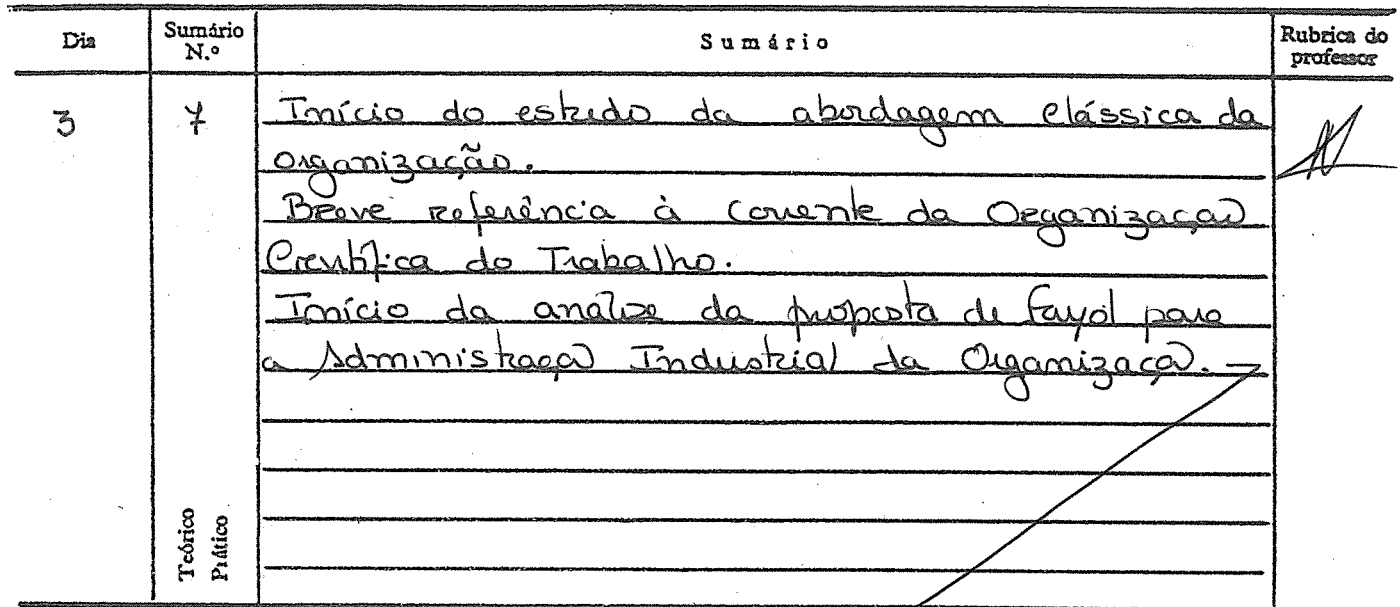 Dia Sumário N.º Sumário Rubrica do professor
3 7 Início do estudo da abordagem clássica da
organização.
Breve referência à corrente da Organização
Científica do Trabalho.
Início da análise da proposta de Fayol para
a Administração Industrial da Organização.
Teórico
Prático